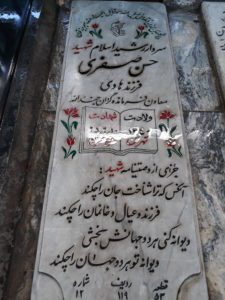 سردار رشید اسلام شهید
حسن صفری
فرزند هادی
معاون فرمانده گردان حزب الله
ولادت شهادت
جزائی از وصیتنامه شهید:
آنکس که ترا شناخت جان را چکند
فرزند و عیال و خانمان را چکند
دیوانه کنی هر دو جهانش بخشی
دیوانه تو هر دو جهان را چکند
قطعه ردیف شماره
۵۳ ۱۱۹ ۱۲